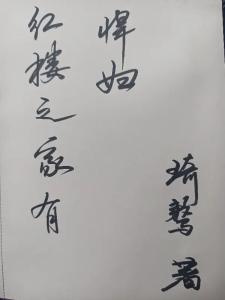 红楼之家有
悍妇
琦 署